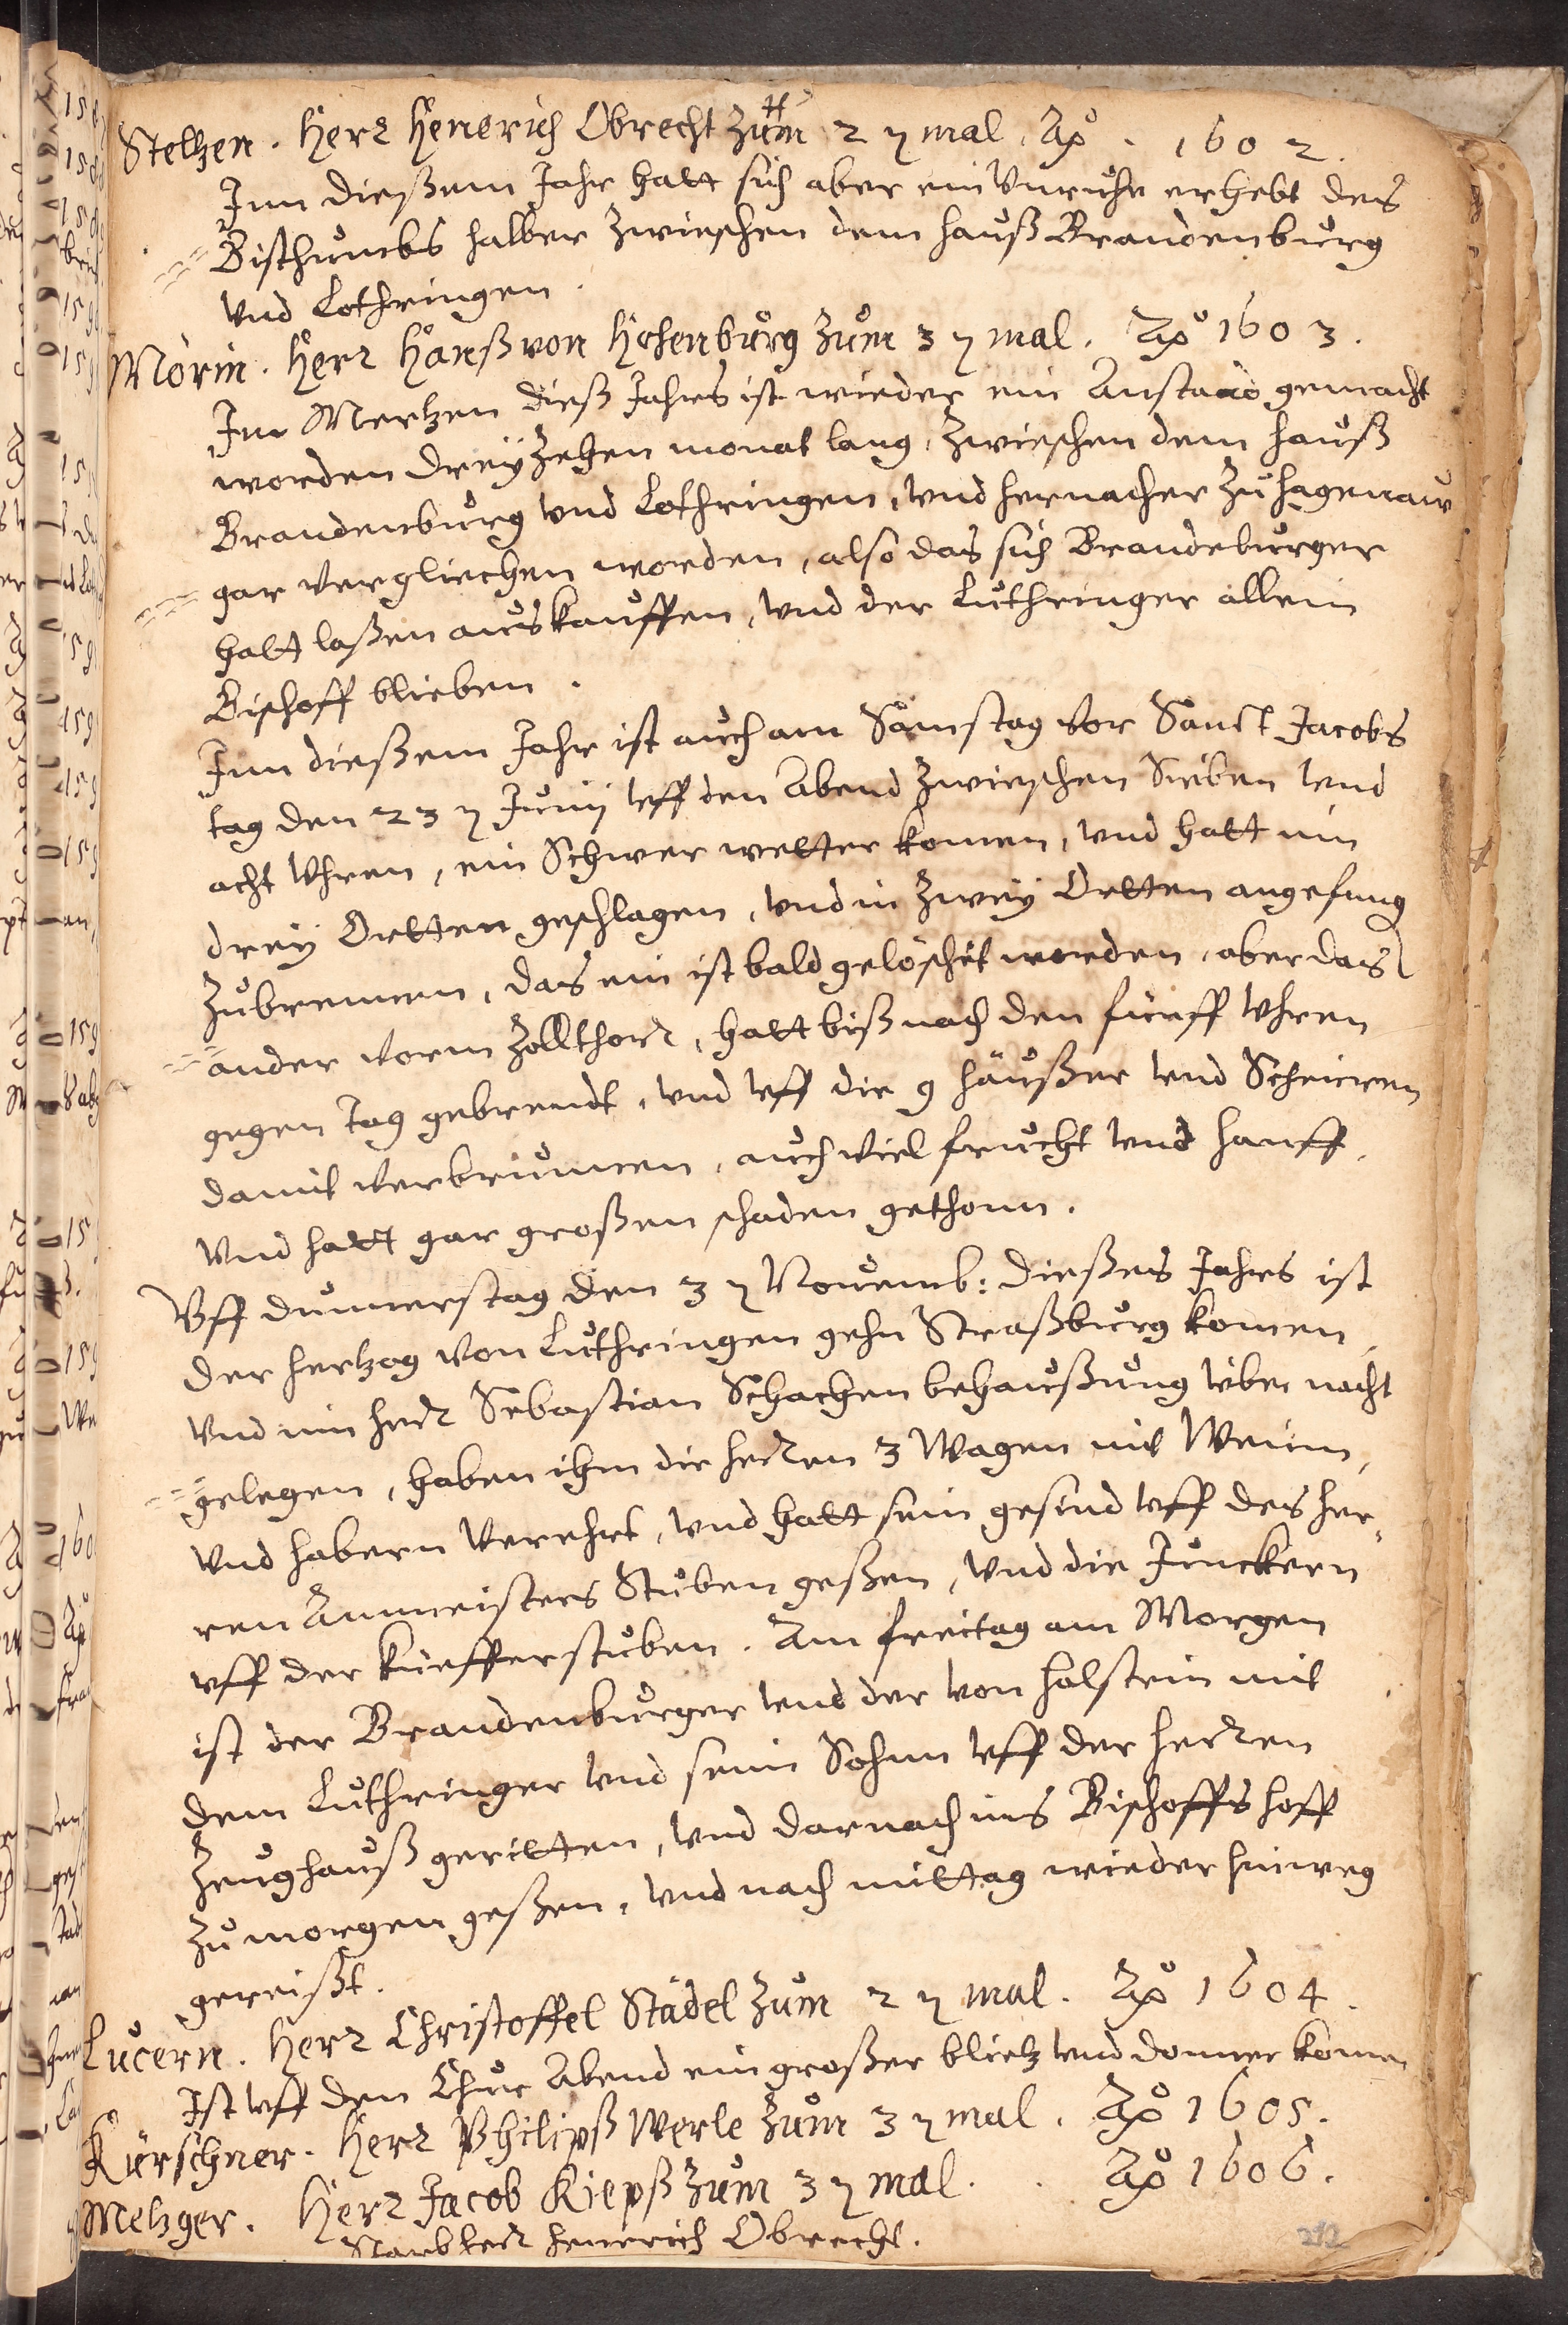 Steltzen. Herr Henerich Obrecht zům 2 ten mal. Aō. 1602.
Inn dießem Jahr hatt sich aber ein Vnrůhe erhebt des
Bisthůmbs halber zwieschen dem hauß Brandenbůrg
Vnd Lothringen.
Mörin. Herr Hanß von Hohenbůrg zům 3 ten mal. Aō 1603.
Im Mertzen dieß Jahrs ist wieder ein Anstand gemacht
worden dreyzehen monat lang, zwieschen dem hauß
Brandenbůrg vnd Lothringen, vnd hernacher zů hagenaw
gar vergliechen worden, also das sich Brandebůrger
hatt laßen außkauffen, vnd der Lůthringer allein
Bischoff blieben.
Inn dießem Jahr ist aůch am Samstag vor Sanct Jacobs
tag den 23 ten Jůnij vff den Abend zwieschen Sieben vnd
acht Vhren, ein Schwer wetter komen, vnd hatt inn
drey Ortten geschlagen, vnd in zwey Ortten angefang
zů brennen, das ein ist bald gelöschet worden, aber das
ander vorm Zollthor, hatt biß nach den fünff Vhren
gegen tag gebrendt, vnd vff die 9 häußer vnd Scheiren
damit verbrůnnen, aůch viel frůcht vnd hanff,
Vnd hatt gar großen schaden gethonn.
Vff důnnerstag den 3 ten Nouemb: dießes Jahrs ist
der hertzog von Lůthringen gehn Straßbůrg komen
vnd inn herr Sebastian Schachen behaußůng vber nacht
gelegen, haben ihm die herren 3 Wagen mit Wein,
vnd habern verehrt, vnd hatt sein gesind vff des her-
ren Ammeisters Stůben geßen, vnd die Jůnckern
vff der Küefferstůben. Am freitag am Morgen
ist der Brandenbůrger vnd der von Holstein mit
dem Lůthringer vnd sein Sohnn vff der herren
Zeůghauß geritten, vnd darnach ins Bischoffs hoff
zů morgen geßen, vnd nach mittag wieder hinweg
gereißt.
Lůcern. Herr Christoffel Städel zům 2 ten mal. Aō 1604.
Ist vff den Chůr Abend ein großer blietz vnd donner komen
Kürschner. Herr Philipß Werle zům 3 ten mal. Aō 1605.
Metzger. Herr Jacob Kiepß zům 3 ten mal. Aō 1606.
Starb herr Henrich Obrecht.
212